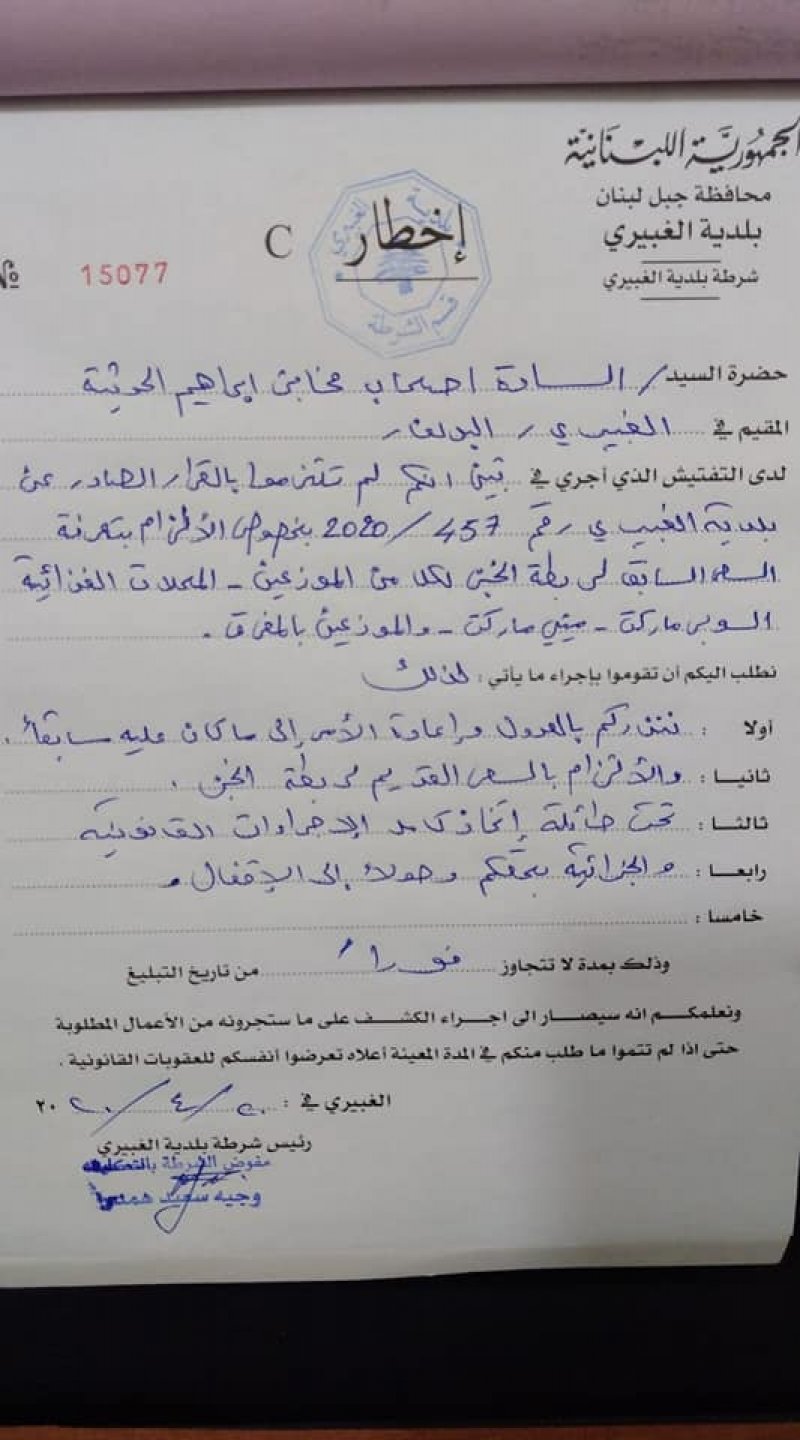 الجمهورية اللبنانية
محافظة جبل لبنان
بلدية الغبيري
شرطة بلدية الغبيري
إخطار C
№ 15077
بلدية الغبيري
قسم الشرطة
حضرة السيد / السادة اصحاب مخابز ابراهيم الحديثة
المقيم في الغبيري /
لدى التفتيش الذي أجري في تبين انكم لم تلتزموا بالقرار الصادر عن
بلدية الغبيري رقم 457/2020 بخصوص الألتزام بتعرفة
السعر السابق لربطة الخبز لكل من الموزعين - المحلات الغذائية
السوبر ماركت - ميني ماركت - والموزعين بالمفرق .
نطلب اليكم أن تقوموا بإجراء ما يأتي : لذلك
أولا : ننذركم بالعدول وإعادة الأمر إلى ما كان عليه سابقاً .
ثانيا : والألتزام بالسعر القديم لربطة الخبز .
ثالثا : تحت طائلة إتخاذ كامل الإجراءات القانونية
رابعا : والجزائية بحقكم وصولاً إلى الإقفال .
خامسا :
وذلك بمدة لا تتجاوز فوراً من تاريخ التبليغ
ونعلمكم انه سيصار الى اجراء الكشف على ما ستجرونه من الأعمال المطلوبة
حتى اذا لم تتموا ما طلب منكم في المدة المعينة أعلاه تعرضوا أنفسكم للعقوبات القانونية .
الغبيري في : / ٤ / ٢٠٢٠
رئيس شرطة بلدية الغبيري
مفوض الشرطة بالتكليف
وجيه سعيد